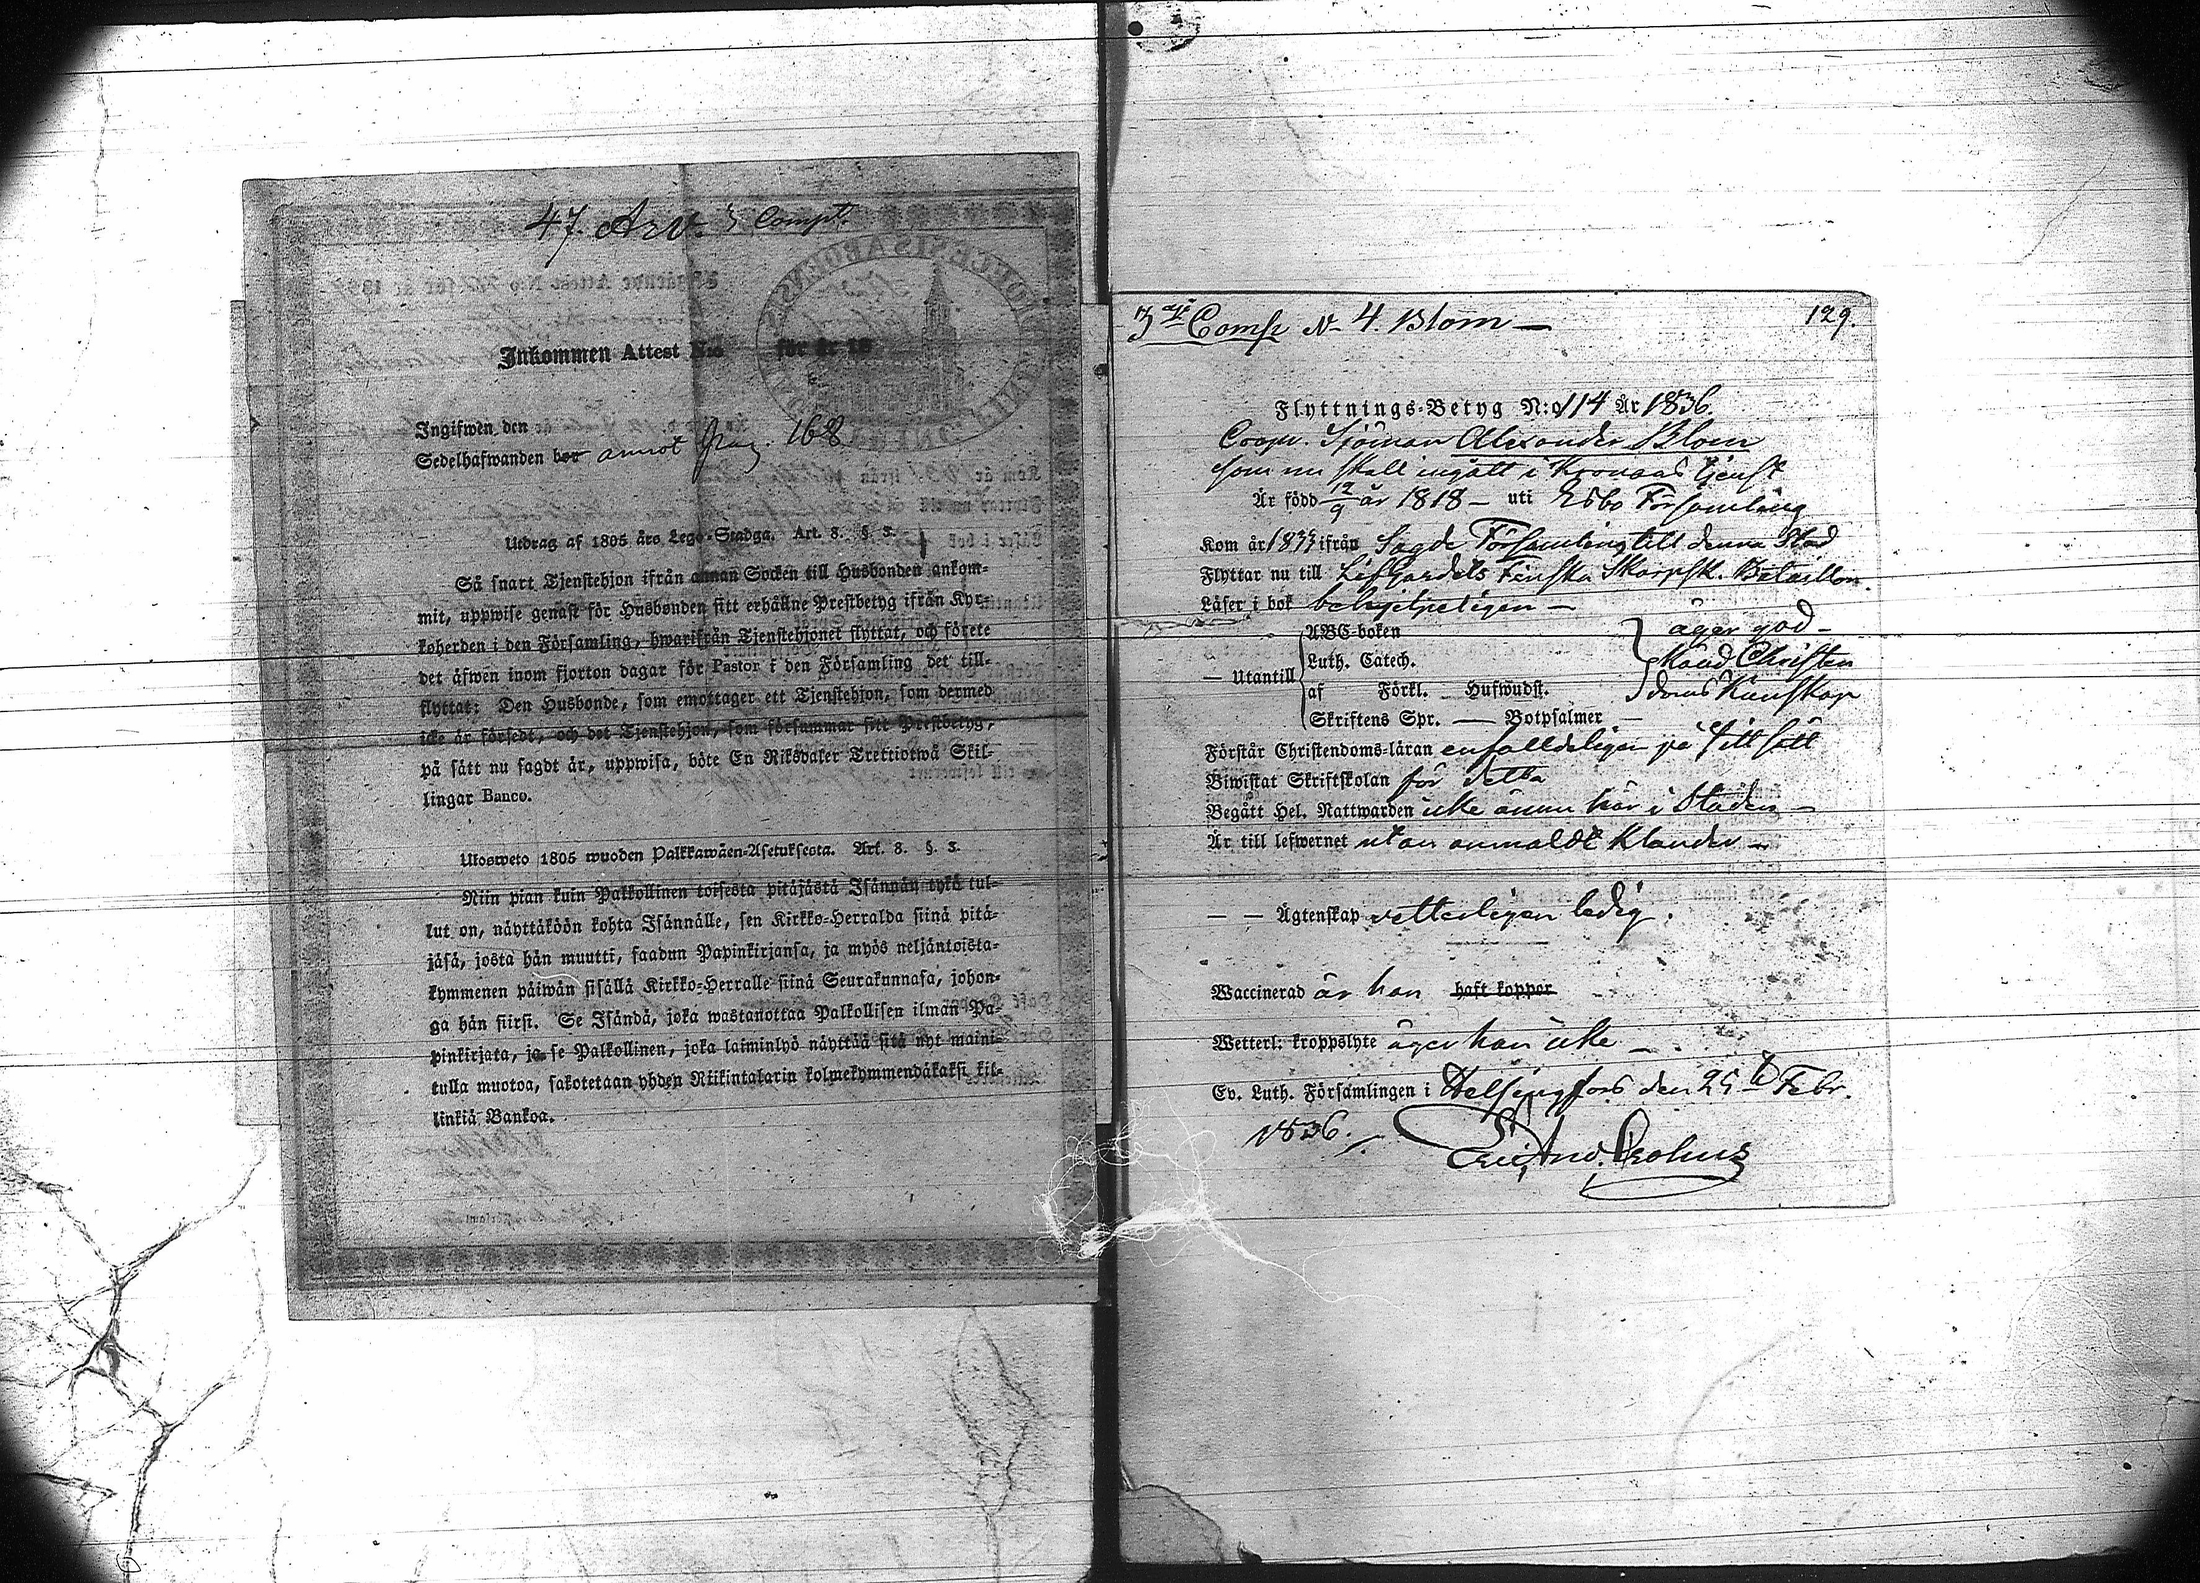 47. Arv. 3 Compt.
Inkommen Attest N:o för år 18
Ingifwen den
Sedelhafwanden bor annot pag. 168
Utdrag af 1805 års Lego-Stadga. Art. 8. §. 3.
Så snart Tjenstehjon ifrån annan Socken till Husbonden ankom-
mit, uppwise genast för Husbonden sitt erhållne Prestbetyg ifrån Kyr-
koherden i den Församling, hwarifrån Tjenstehjonet flyttat, och förete
det äfwen inom fjorton dagar för Pastor i den Församling det till-
flyttat; Den Husbonde, som emottager ett Tjenstehjon, som dermed
icke är försedt, och det Tjenstehjon, som försummar sitt Prestbetyg,
på sätt nu sagdt är, uppwisa, böte En Riksdaler Trettiotwå Skil-
lingar Banco.
Ulosweto 1805 wuoden Palkkawäen-Asetuksesta. Art. 8. §. 3.
Niin pian kuin Palkollinen toisesta pitäjästä Isännän tykö tul-
lut on, näyttäköön kohta Isännälle, sen Kirkko-Herralda siinä pitä-
jäsä, josta hän muutti, saadun Papinkirjansa, ja myös neljäntoista-
kymmenen päiwän sisällä Kirkko-Herralle siinä Seurakunnasa, johon-
ga hän siirsi. Se Isändä, joka wastanottaa Palkollisen ilman Pa-
pinkirjata, ja se Palkollinen, joka laiminlyö näyttää sitä nyt maini-
tulla muotoa, sakotetaan yhden Riikintalarin kolmekymmendäkaksi kil-
linkiä Bankoa.
3die Comp N 4. Blom — 129.
Flyttnings-Betyg N:o 114 År 1836.
Coopv. Sjöman Alexander Blom
som nu skall ingått i Kronans tjenst
Är född 12/9 år 1818 — uti Esbo Församling
Kom år 1833 ifrån Sagde Församling till denna Stad
Flyttar nu till LifGardets Finska Skarpsk. Bataillon
Läser i bok behjelpeligen —
ABC-boken äger nöd-
Luth. Catech. känd Christen
— Utantill af Förkl. — Hufwudst. doms Kunskap
Skriftens Spr. — Botpsalmer —
Förstår Christendoms-läran enfalldeligen på sitt sätt
Biwistat Skriftskolan för detta
Begått Hel. Nattwarden icke ännu här i Staden —
Är till lefwernet utan anmäldt klander —
— — Ägtenskap vetterligen ledig.
Waccinerad är han haft koppor
Wetterl: kroppslyte äger han icke —
Ev. Luth. Församlingen i Helsingfors den 25 Febr.
1836.